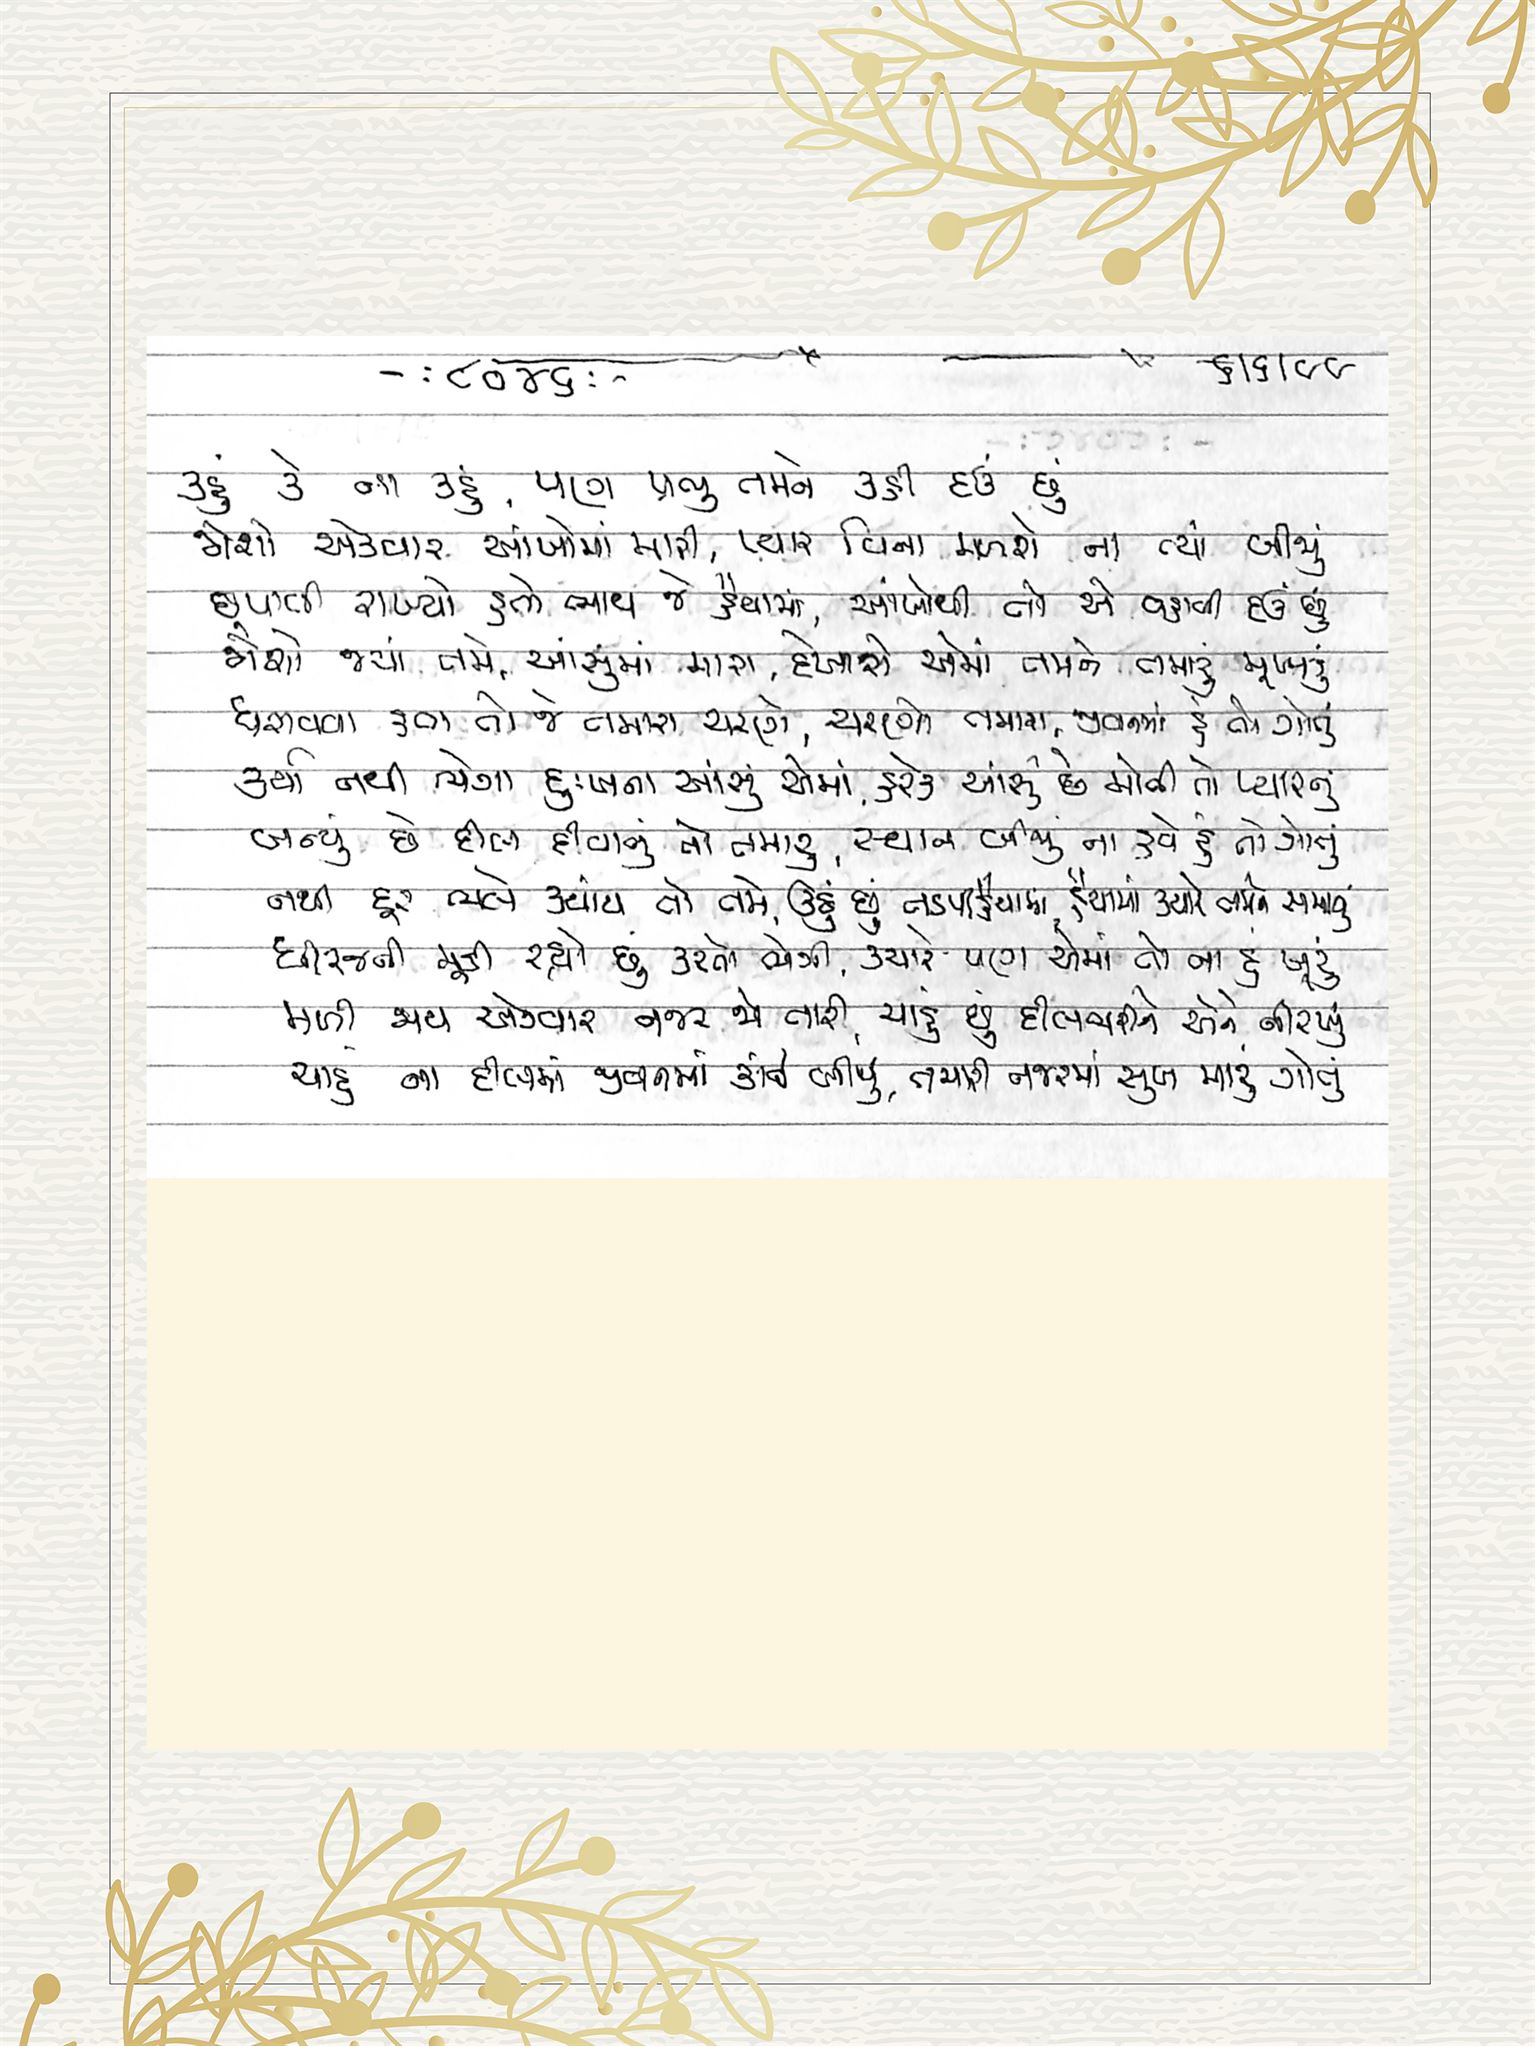 -:૮૦૪૬:-
૬।૬।૯૯
કહું કે ના કહું, પણ પ્રભુ તમને કહી દઉં છું
જોશો એકવાર આંખોમાં મારી, પ્યાર વિના મળશે ના ત્યાં બીજું
છુપાવી રાખ્યો હતો ભાવ જે હૈયામાં, આંખોથી તો એ વહાવી દઉં છું
જોશો જ્યાં તમે, આંસુંમાં મારા, દેખાશે એમાં તમને તમારું મૂખડું
ધરાવવા હતા તો જે તમારા ચરણે, ચરણો તમારા, જીવનમાં હું તો ગોતું
કર્યા નથી ભેગા દુઃખના આંસું એમાં, હરેક આંસું છે મોતી તો પ્યારનું
બન્યું છે દીલ દીવાનું તો તમારું, સ્થાન બીજું ના હવે હું તો ગોતું
નથી દૂર ભલે ક્યાંય તો તમે, કહું છું તડપી હૈયામાં, હૈયામાં ક્યારે તમને સમાવું
ધીરજની મૂડી રહ્યો છું કરતો ભેગી, ક્યારે પણ એમાં તો ના હું ખૂટું
મળી જાય એકવાર નજર જો તારી, ચાહું છું દીલભરીને એને નીરખું
ચાહું ના દીલમાં જીવનમાં કાંઈ બીજું, તમારી નજરમાં સુખ મારું ગોતું